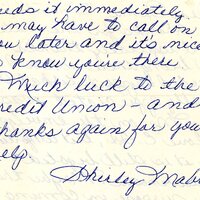 eeds it immediately.
may have to call on
ou later and it's nice
know you're there
Much luck to the
redit Union - and
hanks again for you
elp.
Shirley Mab